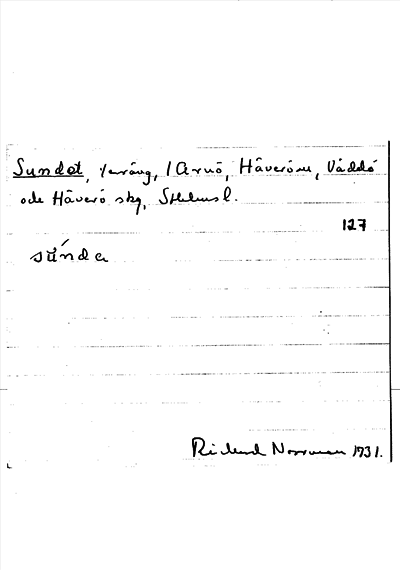 Sundet, terräng, 1 Arnö, Häverö sn, Väddö
och Häverö skg, Sthlms l.
127
sǘnda
Rickard Norrman 1931.